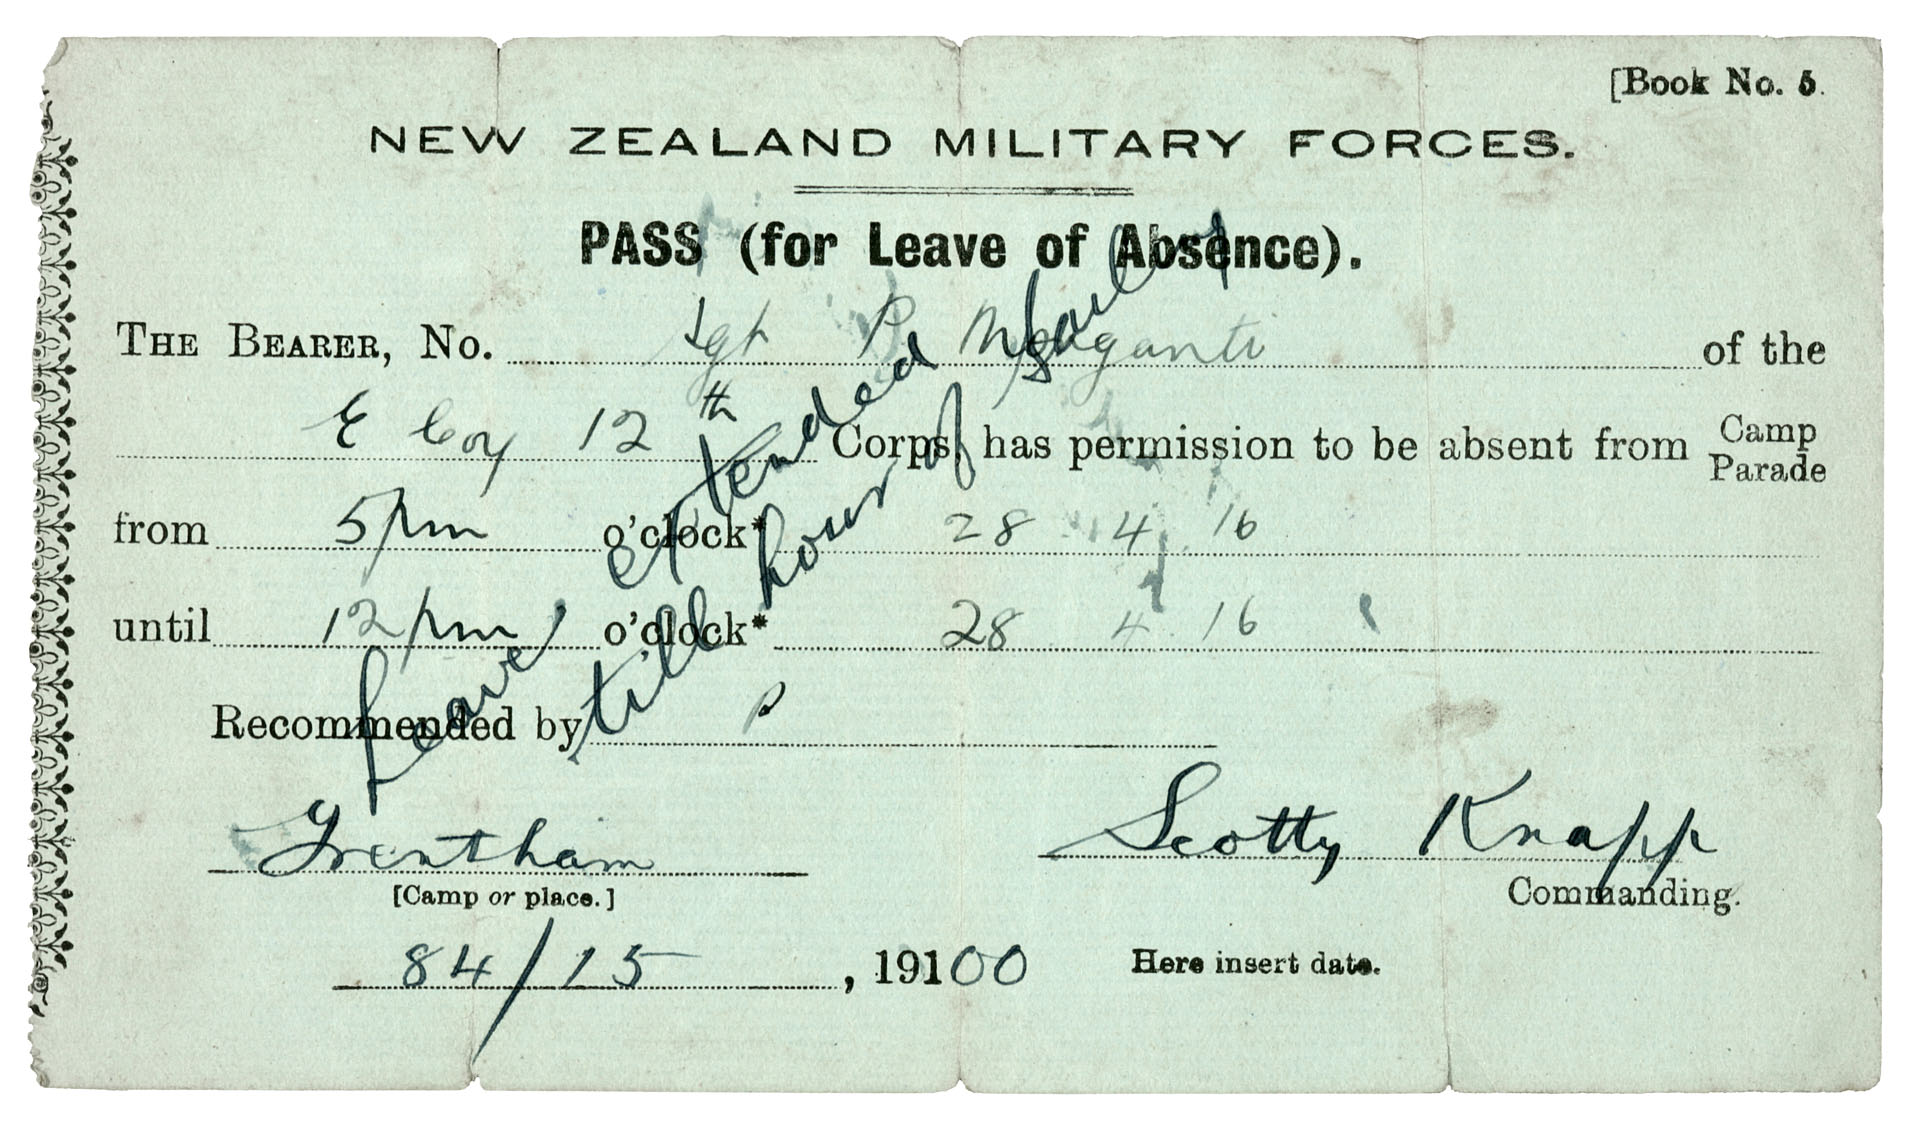 [Book No. 5.
NEW ZEALAND MILITARY FORCES.
PASS (for Leave of Absence).
THE BEARER, No. Sgt P of the
E Coy 12th Corps, has permission to be absent from Camp Parade
from 5pm o'clock* 28 4 16
until 12pm o'clock* 28 4 16
Leave extended
till hour of
Recommended by
Trentham Scotty Knapp
[Camp or place.] Commanding.
84/15, 19100 Here insert date.